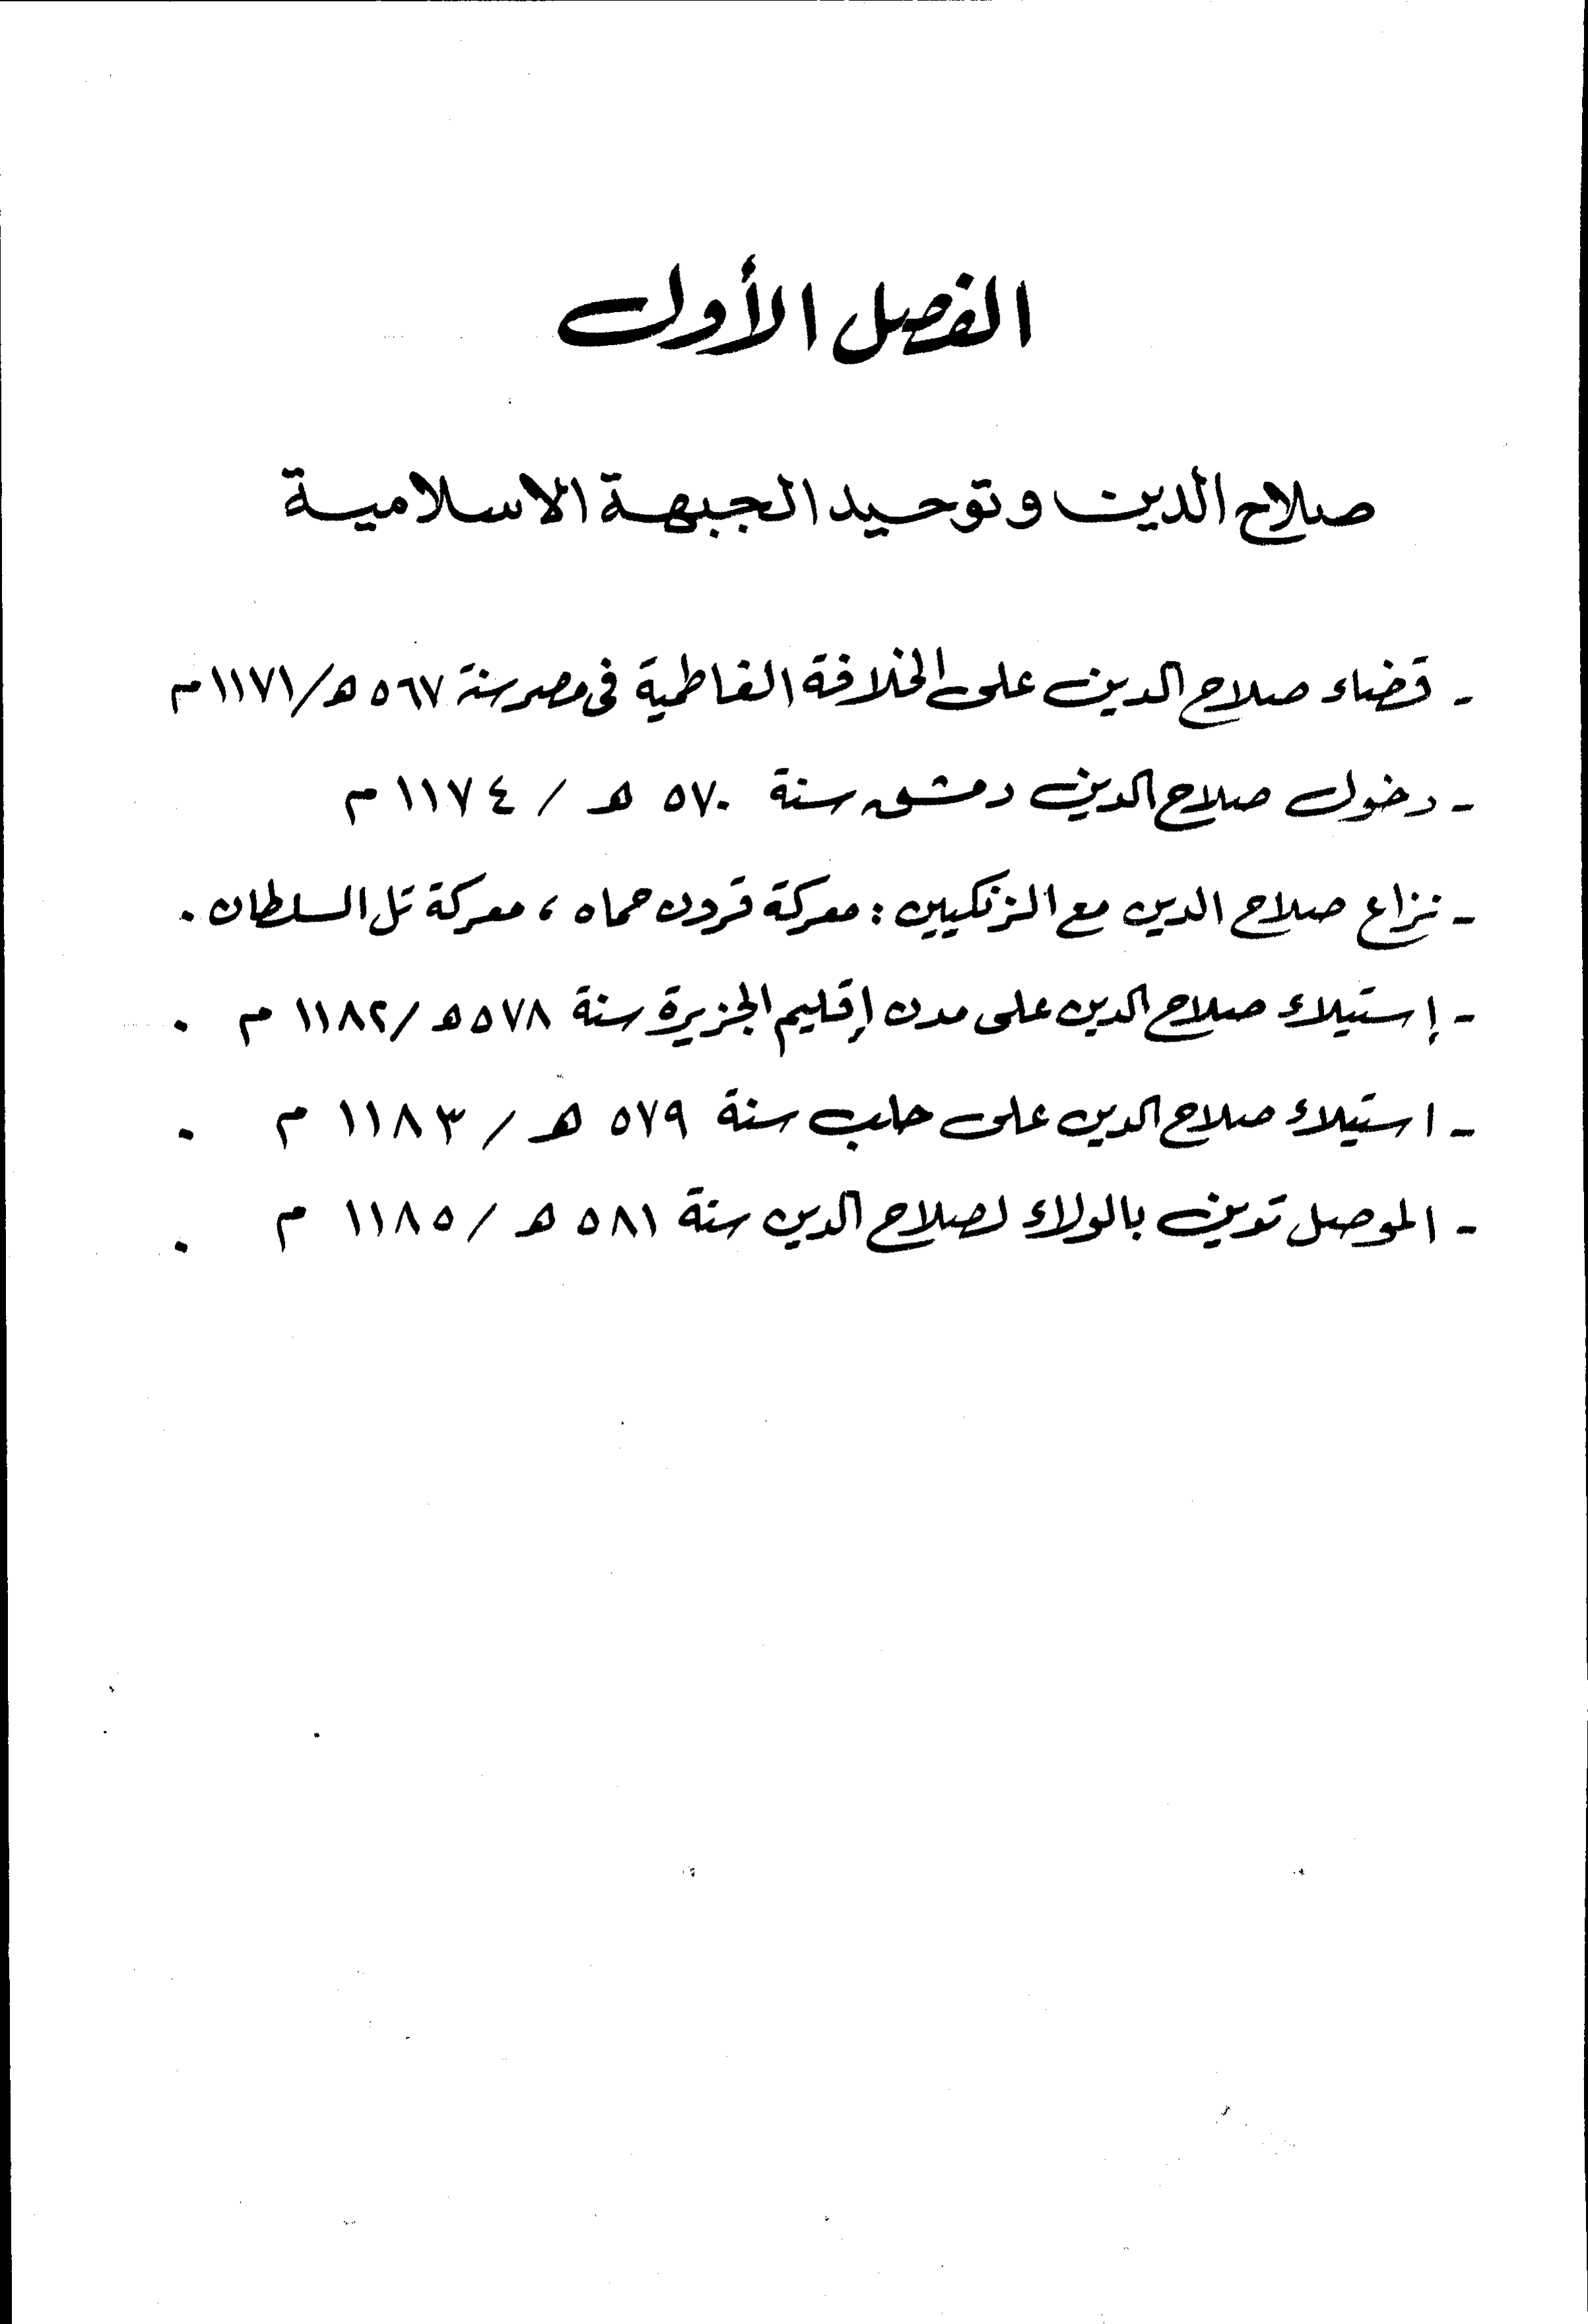 الفصل الأول
صلاح الدين وتوحيد الجبهة الاسلامية
- قضاء صلاح الدين على الخلافة الفاطمية فى مصر سنة ٥٦٧ هـ/١١٧١م
- دخول صلاح الدين دمشق سنة ٥٧٠ هـ / ١١٧٤م
- نزاع صلاح الدين مع الزنكيين : معركة قرون حماه ، معركة تل السلطان .
- إستيلاء صلاح الدين على مدن إقليم الجزيرة سنة ٥٧٨ هـ/١١٨٢ م .
- استيلاء صلاح الدين على حلب سنة ٥٧٩ هـ / ١١٨٣ م .
- الموصل تدين بالولاء لصلاح الدين سنة ٥٨١ هـ / ١١٨٥ م .